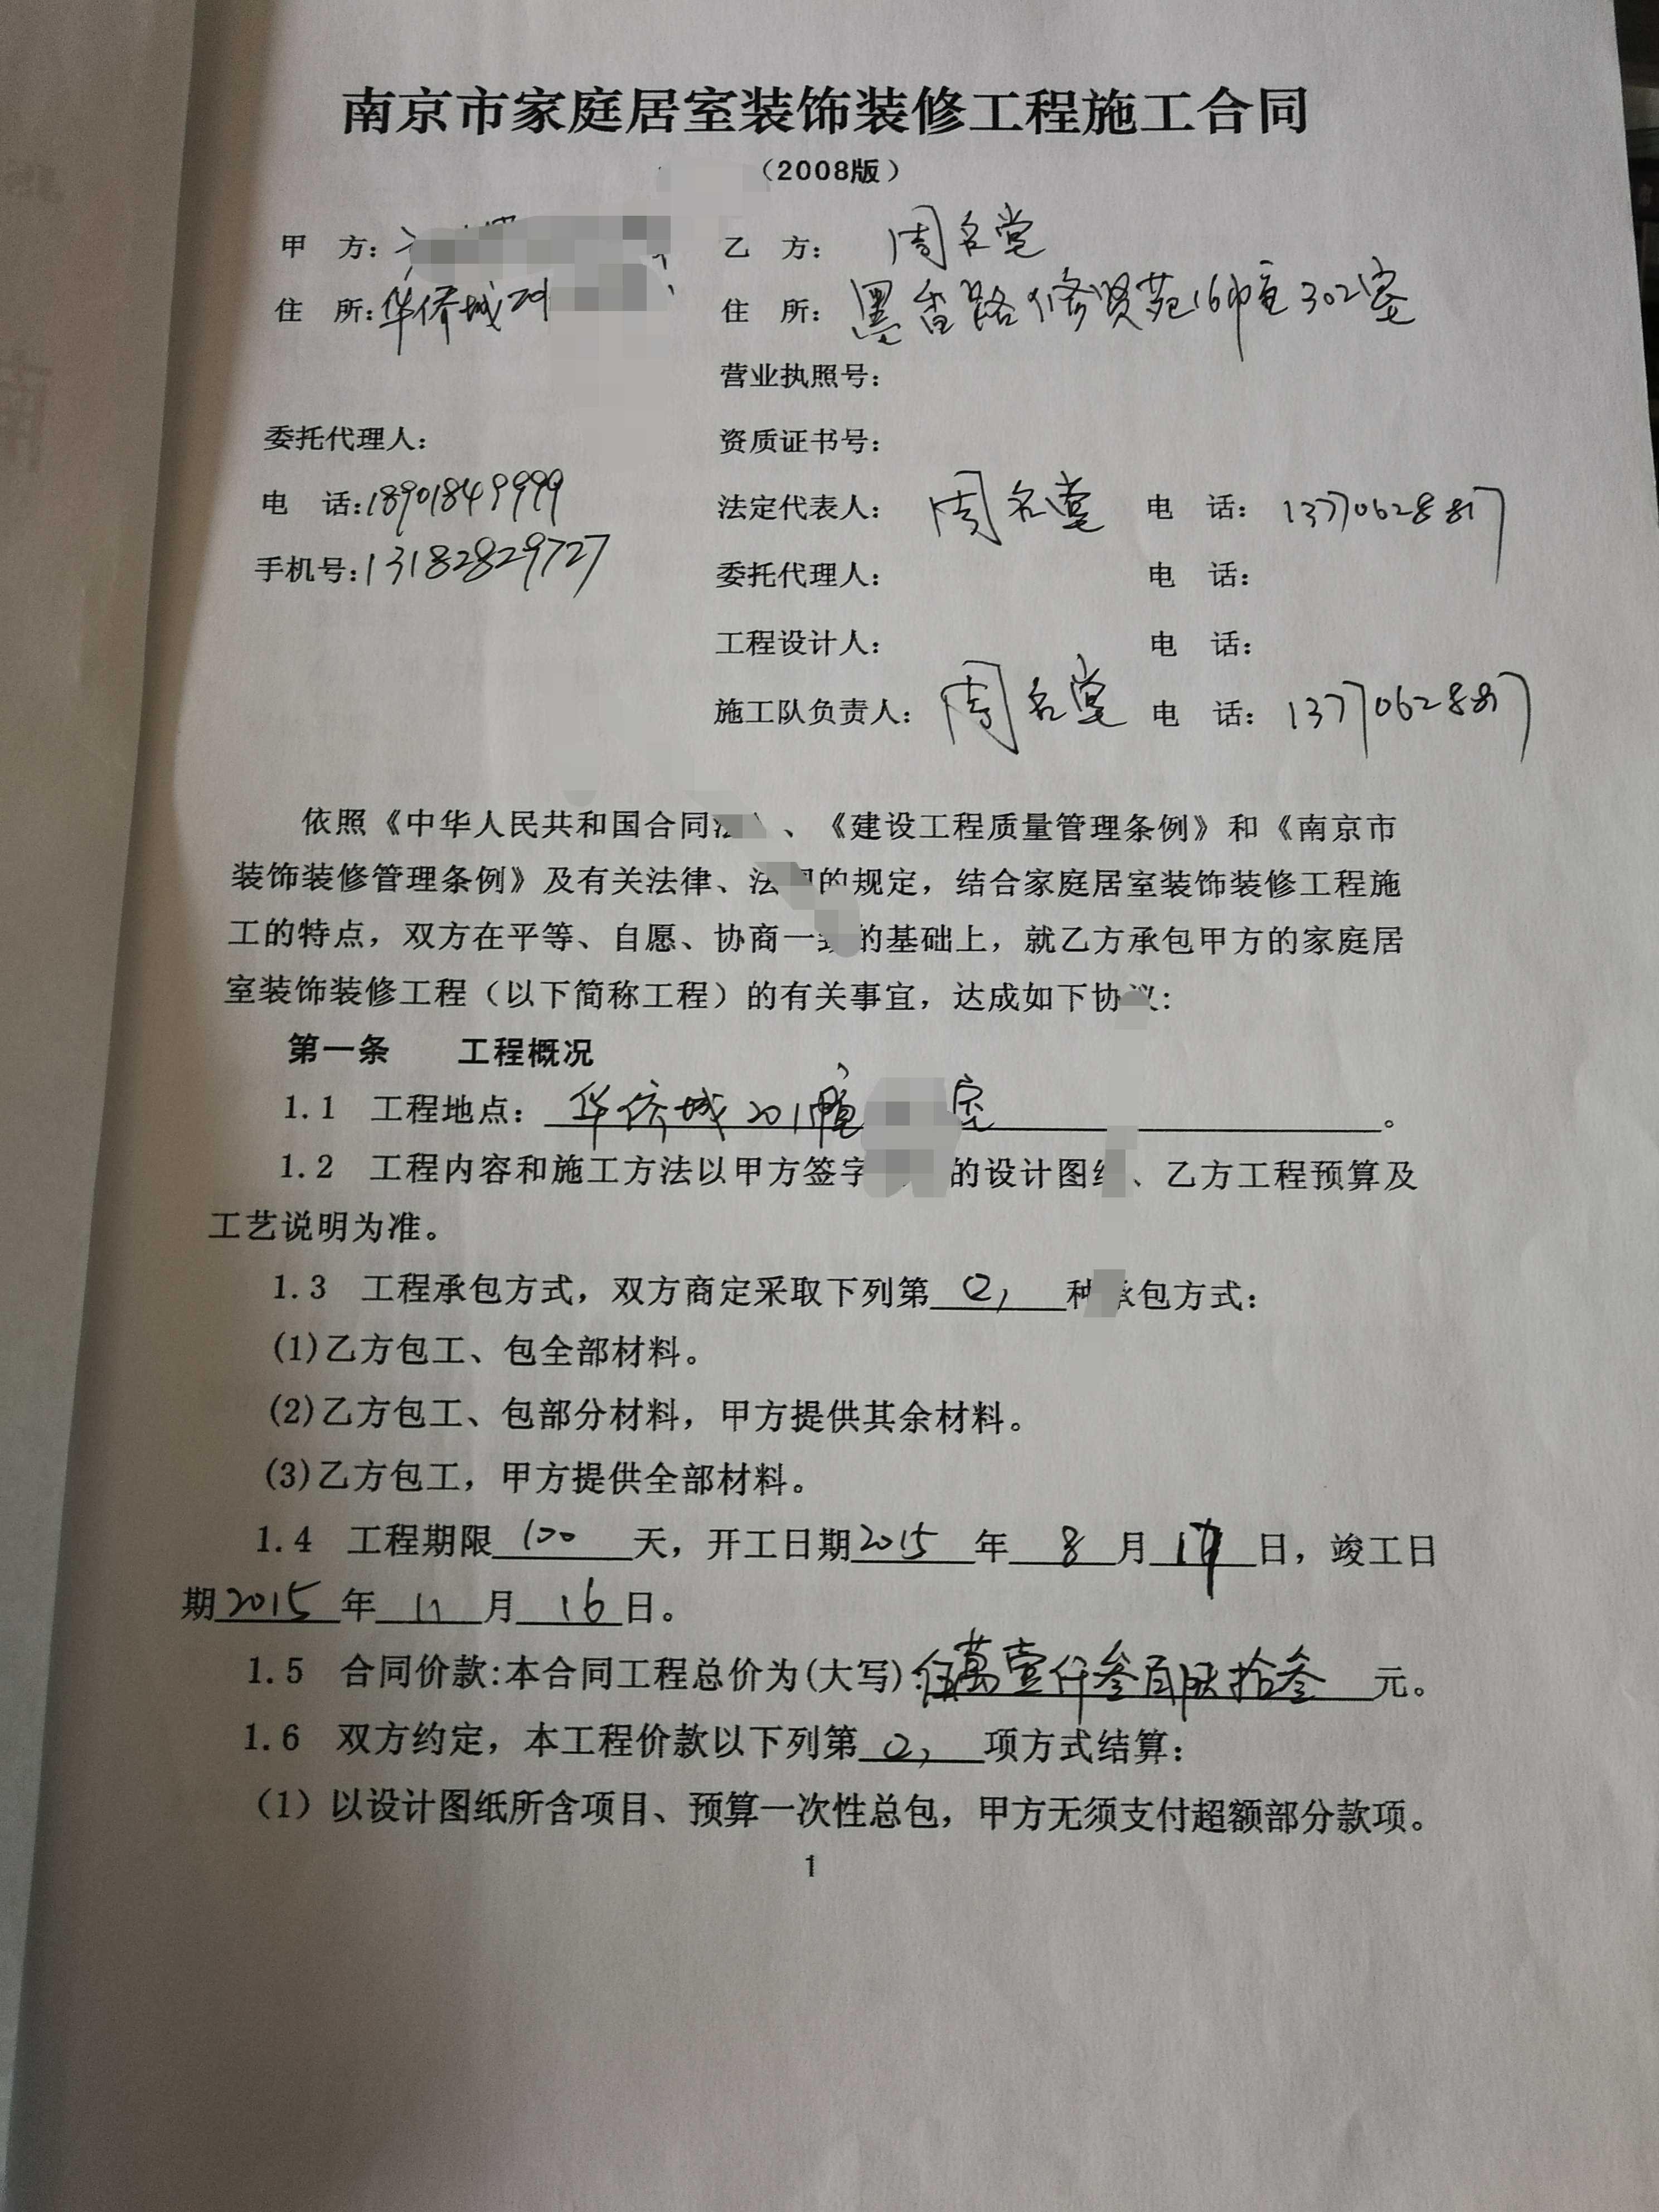 南京市家庭居室装饰装修工程施工合同
（2008版）
甲 方： 乙 方： 周名堂
住 所：华侨城201 住 所： 墨香路修贤苑16幢302室
营业执照号：
委托代理人： 资质证书号：
电 话：18901849999 法定代表人： 周名堂 电 话： 13770628817
手机号：13182829727 委托代理人： 电 话：
工程设计人： 电 话：
施工队负责人： 周名堂 电 话： 13770628817
依照《中华人民共和国合同法》、《建设工程质量管理条例》和《南京市
装饰装修管理条例》及有关法律、法 的规定，结合家庭居室装饰装修工程施
工的特点，双方在平等、自愿、协商一致的基础上，就乙方承包甲方的家庭居
室装饰装修工程（以下简称工程）的有关事宜，达成如下协议：
第一条 工程概况
1.1 工程地点：华侨城201幢 室。
1.2 工程内容和施工方法以甲方签字 的设计图纸、乙方工程预算及
工艺说明为准。
1.3 工程承包方式，双方商定采取下列第 2， 种承包方式：
(1)乙方包工、包全部材料。
(2)乙方包工、包部分材料，甲方提供其余材料。
(3)乙方包工，甲方提供全部材料。
1.4 工程期限 100 天，开工日期2015 年 8 月 17 日，竣工日
期2015 年 11 月 16 日。
1.5 合同价款:本合同工程总价为(大写):伍萬壹仟叁百 拾叁 元。
1.6 双方约定，本工程价款以下列第 2， 项方式结算：
（1）以设计图纸所含项目、预算一次性总包，甲方无须支付超额部分款项。
1